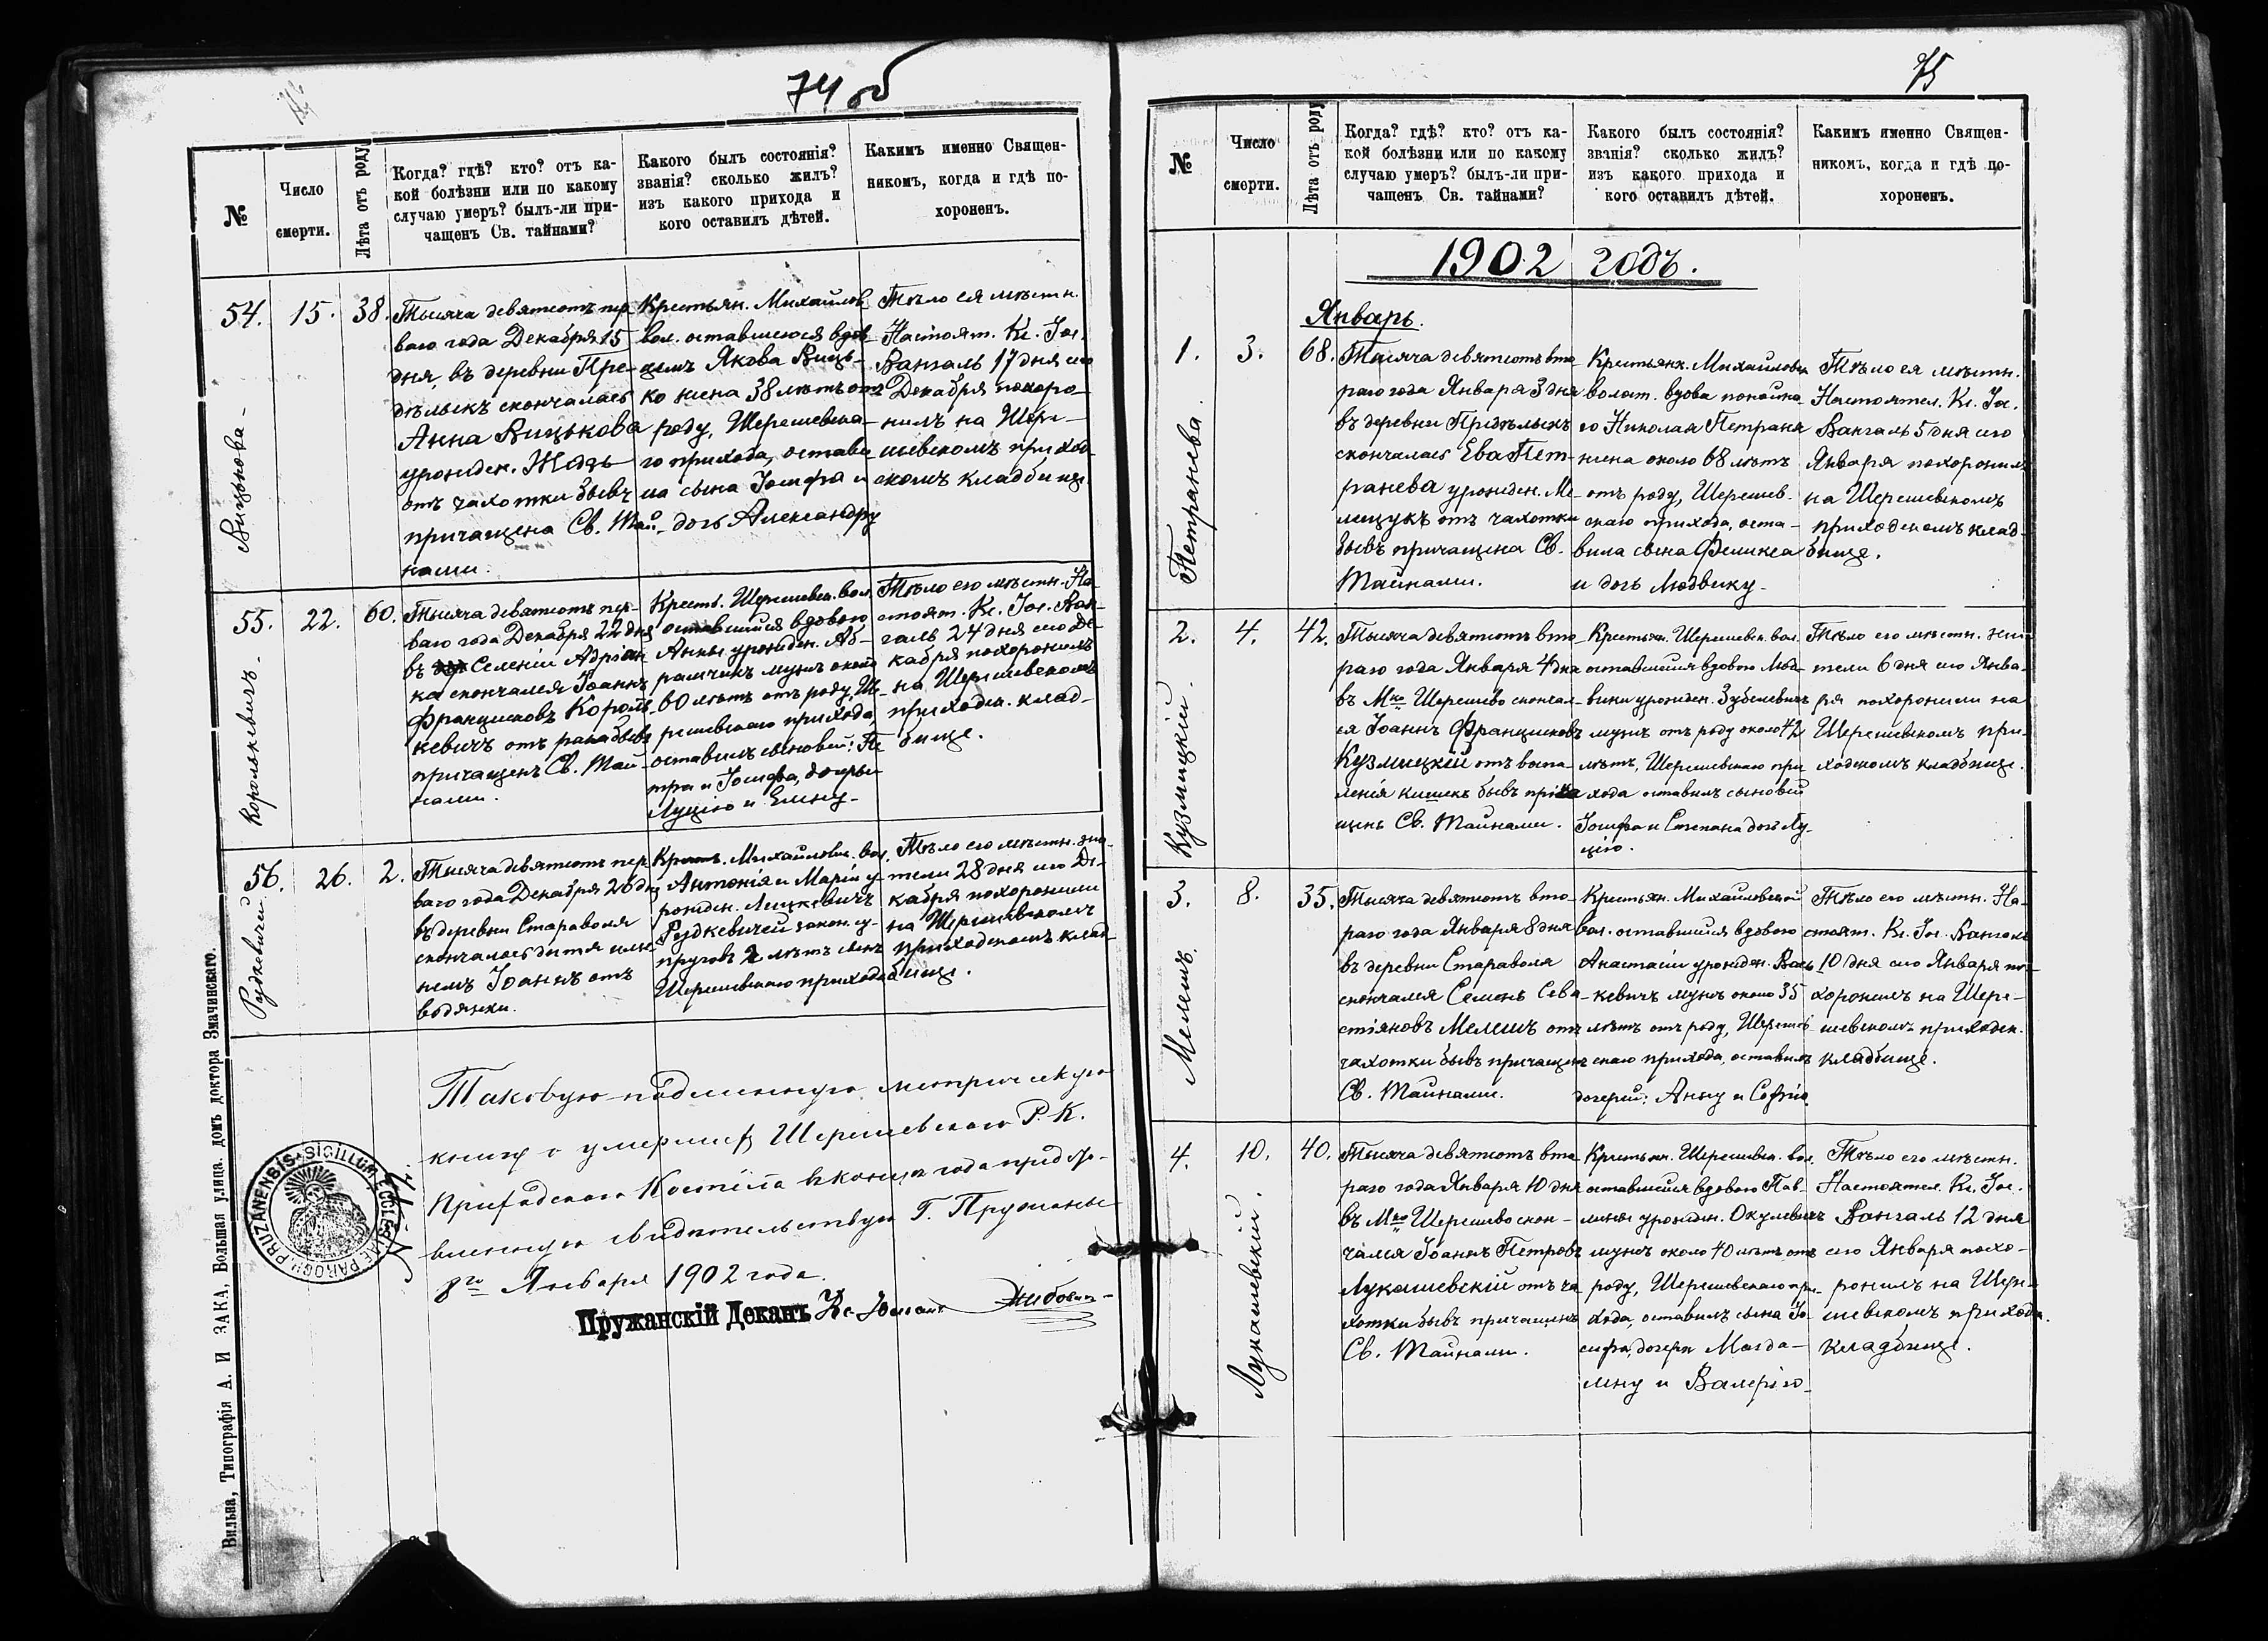 74 об
№
Число
смерти.
Лѣта отъ роду
Когда? гдѣ? кто? отъ ка-
кой болѣзни или по какому
случаю умеръ? былъ-ли при-
чащенъ Св. тайнами?
Какого былъ состоянія?
званія? сколько жилъ?
изъ какого прихода и
кого оставилъ дѣтей.
Какимъ именно Священ-
никомъ, когда и гдѣ по-
хороненъ.
Вицькова
54.
15.
38.
Тысяча девятсотъ пер
ваго года Декабря 15
дня, въ деревни Пре-
дѣлыхъ скончалась
Анна Вицькова
урожден.
отъ чахотки бывъ
причащена Св. Тай-
нами.
Крестьян. Михайлов
вол. оставшегося вдов
цемъ Якова Виць-
ко жена 38 лѣтъ отъ
роду, Шерешевска-
го прихода, остави
ла сына Іосифа и
дочь Александру
Тѣло ея мѣстн.
Настоят. Кс. Іос.
Вангаль 17 дня сего
Декабря похоро-
нилъ на Шере-
шевскомъ приход-
скомъ кладбище
Королькевичъ
55.
22.
60.
Тысяча девятсотъ пер-
ваго года Декабря 22 дня
въ Селеніи Адріан
ка скончался Іоаннъ
Францисковъ Король-
кевичъ отъ рака бывъ
причащенъ Св. Тай-
нами.
Крест. Шерешевск. вол.
оставшійся вдовою
Анны урожден. Аб-
рамчикъ мужъ около
60 лѣтъ отъ роду, Ше-
решевскаго прихода,
оставилъ сыновей: Пе
тра и Іосифа, дочерь
Луцію и Елену
Тѣло его мѣстн. На-
стоят. Кс. Іос. Ван-
галь 24 дня сего Де-
кабря похоронилъ
на Шерешевскомъ
приходск. клад-
бище.
Рудкевичей
56.
26.
2.
Тысяча девятсотъ пер
ваго года Декабря 26 дн
въ деревни Стараволя
скончалось дитя име
немъ Іоаннъ отъ
водянки.
Крест. Михайловск. вол.
Антонія и Маріи у-
рожден. Лецкевичъ
Рудкевичей закон. су-
пруговъ 2 лѣтъ сынъ
Шерешевскаго прихода
Тѣло его мѣстн. жи-
тели 28 дня сего Де-
кабря похоронили
на Шерешевскомъ
приходскомъ клад-
бище.
Таковую подлинную метрическую
книгу о умершихъ Шерешевскаго Р. К.
Приходскаго Костела въ конце года предъя-
вленную свидѣтельствую Г. Пружаны
8го Января 1902 года.
Пружанскій Деканъ Кс.
SIGILLUM ECCLESIAE PAROCH. PRUZANENSIS
Вильна, Типографія А. И ЗАКА, Большая улица. домъ доктора Змачинскаго.
75
№
Число
смерти.
Лѣта отъ роду
Когда? гдѣ? кто? отъ ка-
кой болѣзни или по какому
случаю умеръ? былъ-ли при-
чащенъ Св. тайнами?
Какого былъ состоянія?
званія? сколько жилъ?
изъ какого прихода и
кого оставилъ дѣтей.
Какимъ именно Священ-
никомъ, когда и гдѣ по-
хороненъ.
1902 годъ.
Январь.
Петранева
1.
3.
68.
Тысяча девятсотъ вто
раго года Января 3 дня
въ деревни Предѣлыхъ
скончалась Ева Пет-
ранева урожден. Ме-
лещукъ отъ чахотки
бывъ причащена Св.
Тайнами.
Крестьянк. Михайловск
волост. вдова покойна-
го Николая Петраня
жена около 68 лѣтъ
отъ роду, Шерешев-
скаго прихода, оста-
вила сына Феликса
и дочь Людвику
Тѣло ея мѣстн.
Настоятел. Кс. Іос.
Вангаль 5 дня сего
Января похоронилъ
на Шерешевскомъ
приходскомъ клад-
бище.
Кузмицкій
2.
4.
42.
Тысяча девятсотъ вто
раго года Января 4 дня
въ Мко Шерешево скончал-
ся Іоаннъ Францисковъ
Кузмицкій отъ воспа-
ленія кишекъ бывъ прича
щенъ Св. Тайнами.
Крестьян. Шерешевск. вол.
оставшійся вдовою Люд-
вики урожден. Зубелевичъ
мужъ отъ роду около 42
лѣтъ, Шерешевскаго при
хода оставилъ сыновей
Іосифа и Степана дочь Лу-
цію.
Тѣло его мѣстн. жи-
тели 6 дня сего Янва-
ря похоронили на
Шерешевскомъ при-
ходскомъ кладбище.
Мелешъ
3.
8.
35.
Тысяча девятсотъ вто-
раго года Января 8 дня
въ деревни Стараволя
скончался Семенъ Сева-
стіяновъ Мелешъ отъ
чахотки бывъ причащен
Св. Тайнами.
Крестьян. Михайловской
вол. оставшійся вдовою
Анастасіи урожден. Вась
кевичъ мужъ около 35
лѣтъ отъ роду, Шерешев
скаго прихода, оставилъ
дочерей: Анну и Софію
Тѣло его мѣстн. На-
стоят. Кс. Іос. Вангаль
10 дня сего Января по-
хоронилъ на Шере-
шевскомъ приходск.
кладбище.
Лукашевскій
4.
10.
40.
Тысяча девятсотъ вто
раго года Января 10 дня
въ Мко Шерешево скон-
чался Іоаннъ Петровъ
Лукашевскій отъ ча
хотки бывъ причащенъ
Св. Тайнами.
Крестьян. Шерешевск. вол.
оставшійся вдовою Пав-
лины урожден. Окулевичъ
мужъ около 40 лѣтъ отъ
роду, Шерешевскаго при-
хода, оставилъ сына Іо-
сифа, дочери Магда-
лену и Валерію
Тѣло его мѣстн.
Настоятел. Кс. Іос.
Вангаль 12 дня
сего Января похо-
ронилъ на Шере-
шевскомъ приходск.
кладбище.